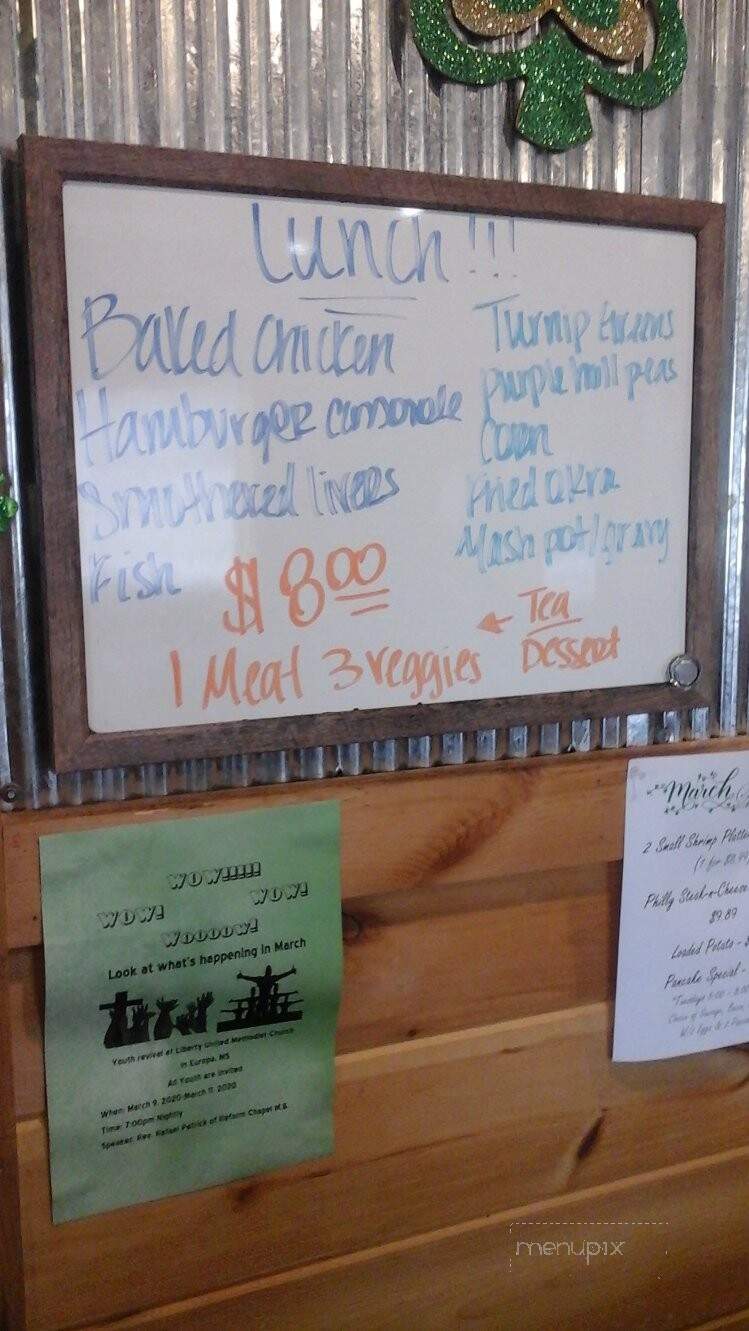 Lunch!!!
Baked Chicken
Hamburger casserole
Smothered livers
Fish
Turnip Greens
purple hull peas
Corn
Fried okra
Mash pot/gravy
$8.00
1 Meat 3 veggies
Tea
Dessert
WOW!!!!!
WOW!
WOW!
WOOOOW!
Look at what's happening in March
Youth revival at Liberty United Methodist Church
in Europa, MS
All Youth are invited
When: March 9, 2020-March 11, 2020
Time: 7:00pm Nightly
Speaker: Rev. Rafael Patrick of Reform Chapel M.B.
March
2 Small Shrimp
(1 for
Philly Steak-n-Cheese
$9.89
Loaded Potato - $
Pancake Special -
menupix